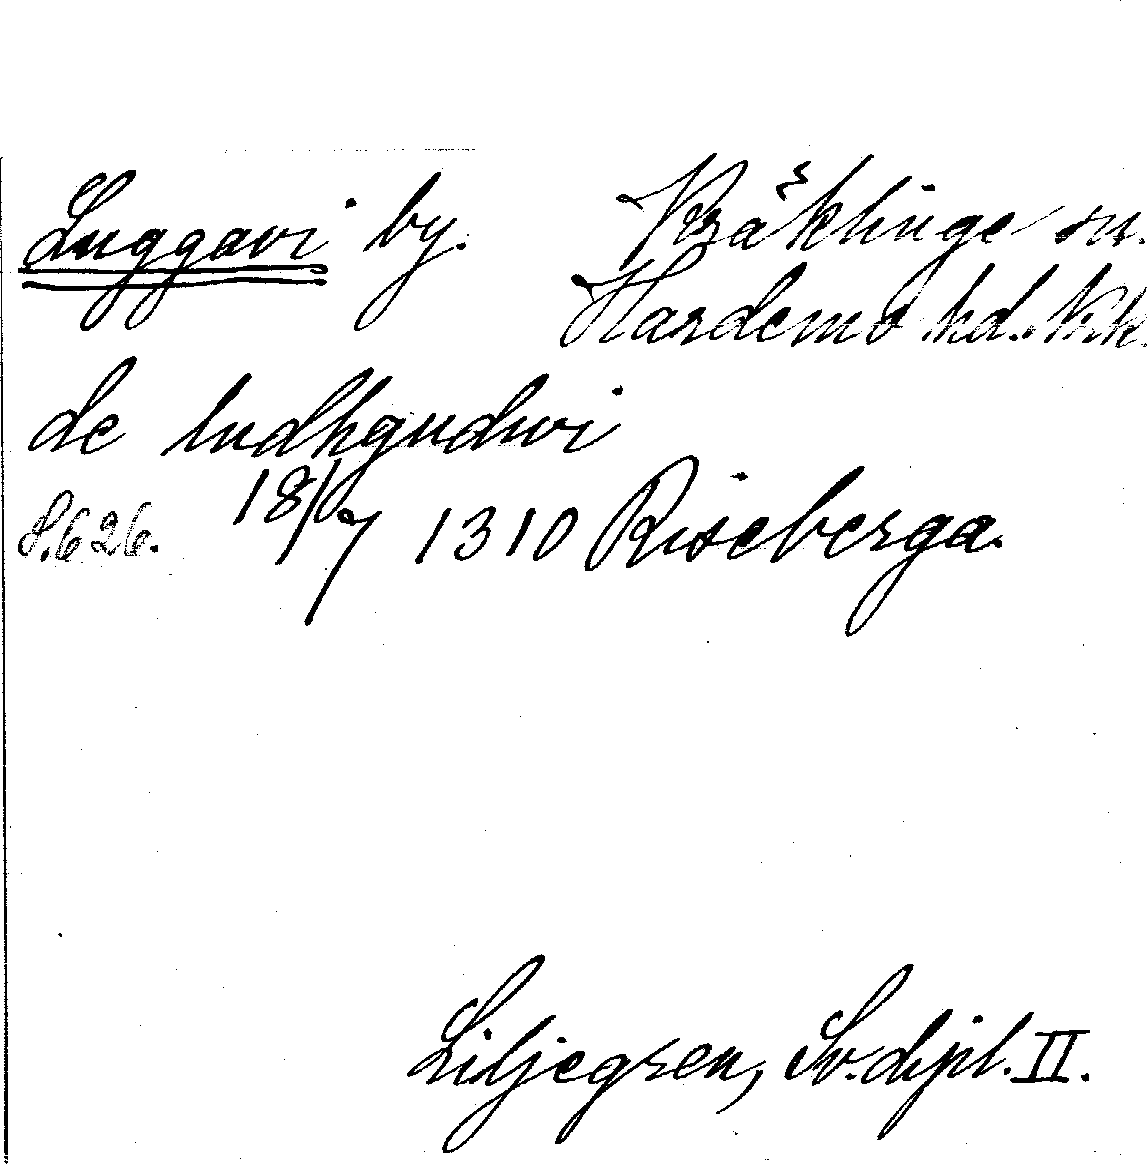 Luggavi by. Kräklinge sn.
Hardemo hd. Nrk.
de ludhgudwi
S. 626. 18/7 1310 Riseberga.
Liljegren, Sv. dipl. II.